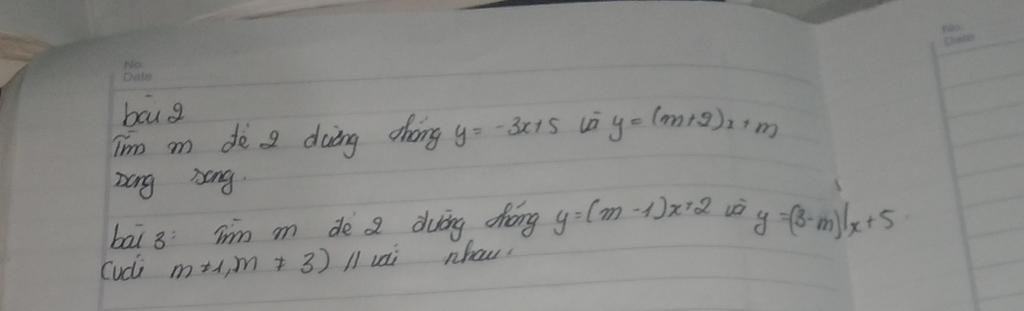 No.
Date
No.
Date
bài 2
Tìm m để 2 đường thẳng y = -3x+5 và y = (m+2)x+m
song song.
bài 3: Tìm m để 2 đường thẳng y=(m-1)x+2 và y=(3-m)x+5
(với m≠1, m≠3) // với nhau.